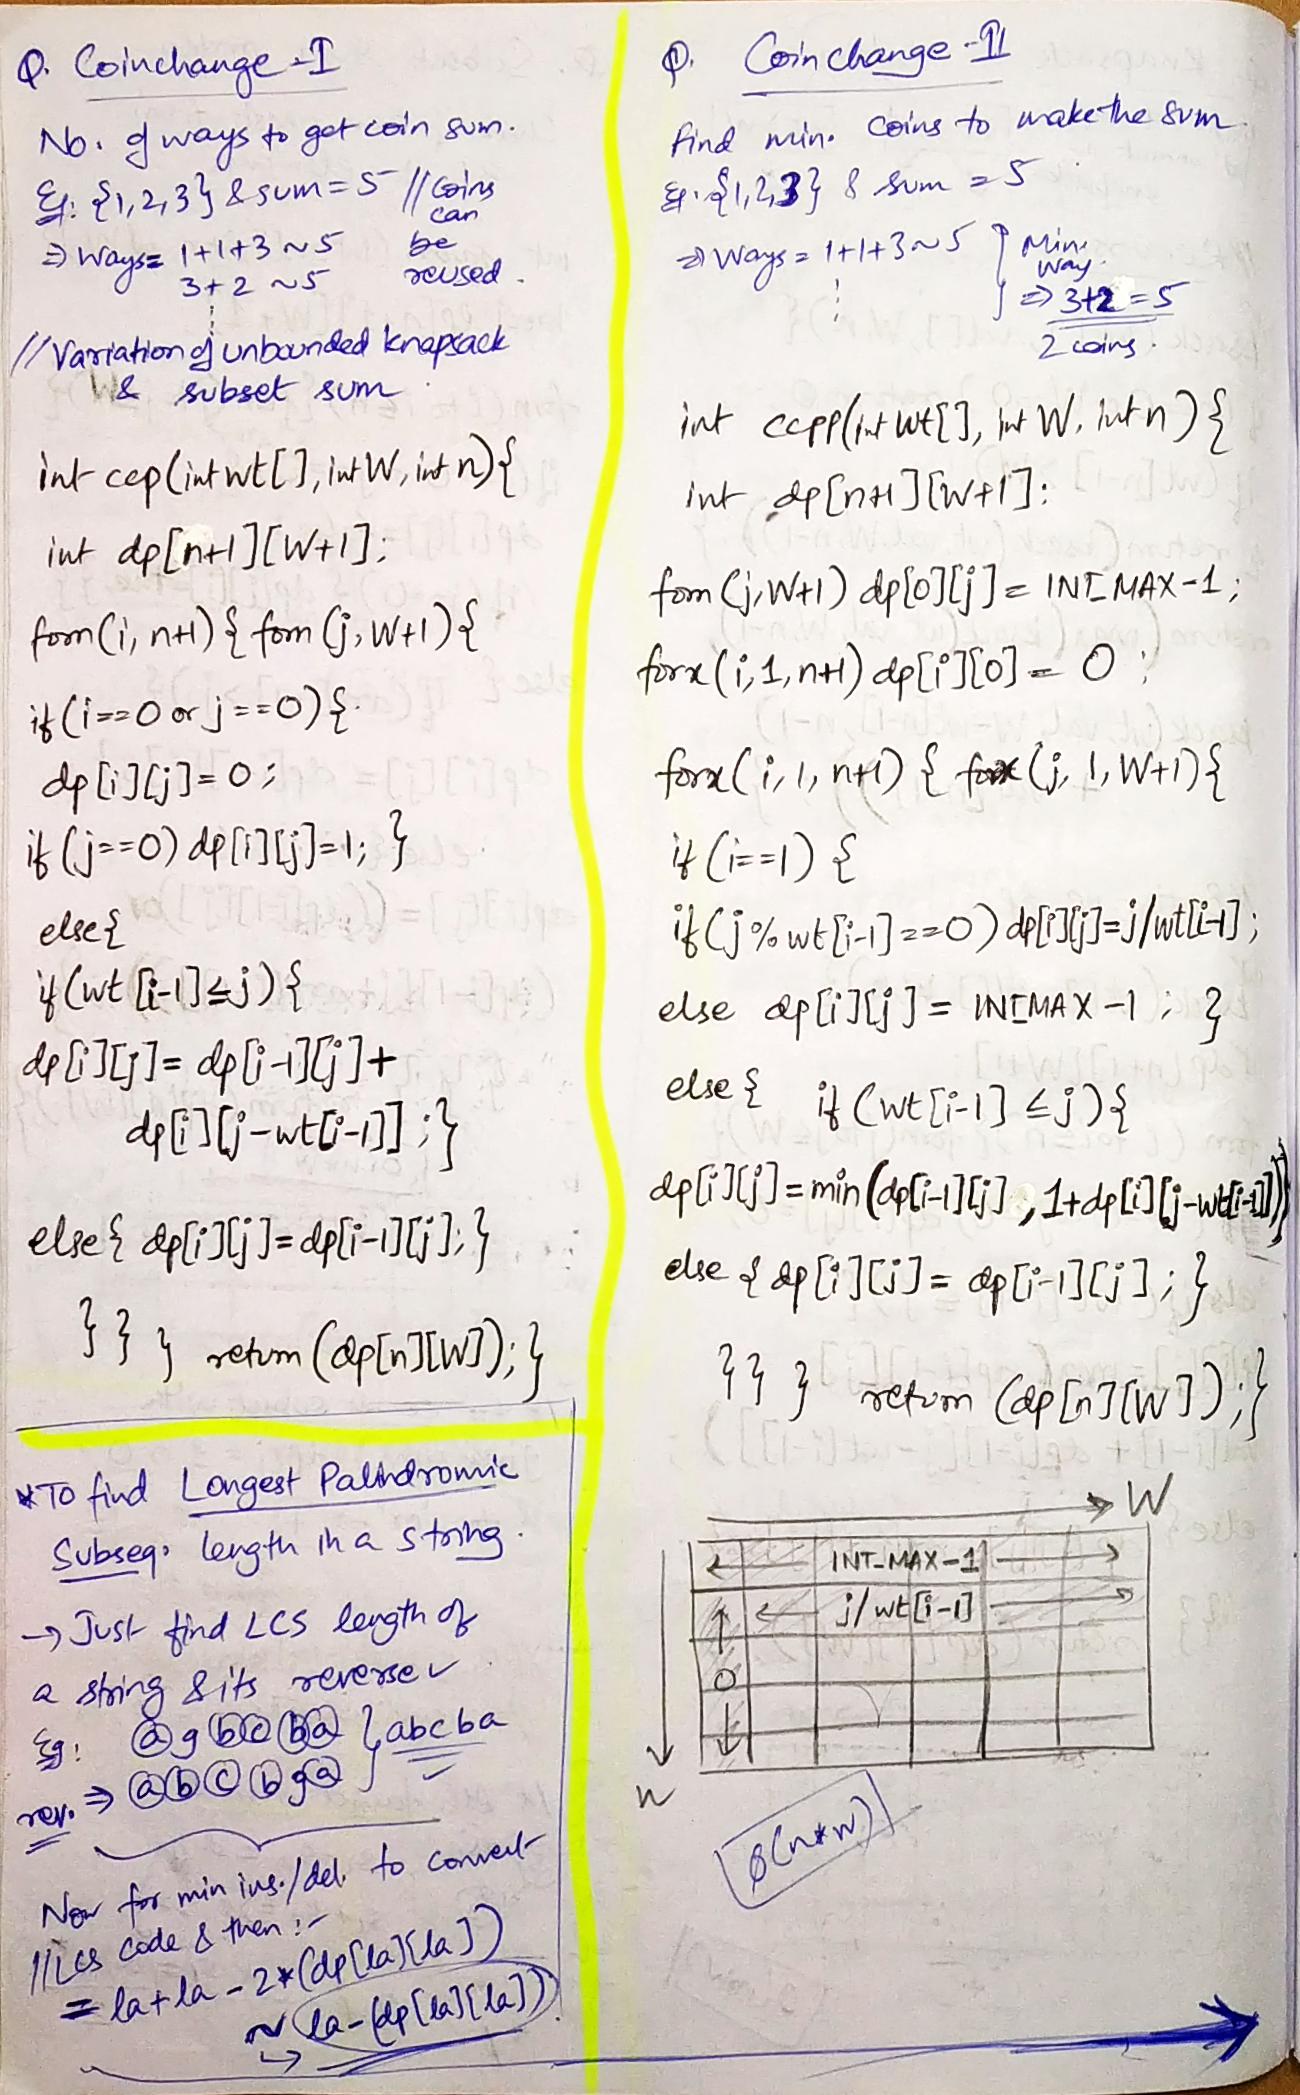 Q. Coinchange - I
No. of ways to get coin sum.
Eg: {1,2,3} & sum = 5 // Coins
can
be
reused.
=> Ways = 1+1+3 ~ 5
3+2 ~ 5
// Variation of unbounded knapsack
& subset sum
int ccp(int wt[], int W, int n){
int dp[n+1][W+1];
forn(i, n+1) { forn(j, W+1){
if(i==0 or j==0){
dp[i][j]=0;
if(j==0) dp[i][j]=1; }
else{
if(wt[i-1]≤j){
dp[i][j]= dp[i-1][j]+
dp[i][j-wt[i-1]];}
else{ dp[i][j]=dp[i-1][j];}
}}} return(dp[n][W]);}
*To find Longest Palindromic
Subseq. length in a string.
→ Just find LCS length of
a string & its reverse
Eg: a g b c b a } abcba
rev. => a b c b g a
Now for min ins./del. to convert
//LCS code & then :-
= la+la-2*(dp[la][la])
~ la-(dp[la][la])
Q. Coinchange - II
Find min. coins to make the sum
Eg. {1,2,3} & sum = 5
=> Ways = 1+1+3 ~ 5 } Min.
way.
=> 3+2 = 5
2 coins.
int ccpp(int wt[], int W, int n){
int dp[n+1][W+1];
forn(j,W+1) dp[0][j]= INT_MAX-1;
forx(i,1,n+1) dp[i][0] = 0;
forx(i,1,n+1) { forx(j,1,W+1){
if(i==1) {
if(j%wt[i-1]==0) dp[i][j]=j/wt[i-1];
else dp[i][j] = INT_MAX-1; }
else { if(wt[i-1] ≤j){
dp[i][j]=min(dp[i-1][j], 1+dp[i][j-wt[i-1]])}
else { dp[i][j] = dp[i-1][j]; }
}}} return (dp[n][W]);}
W
INT_MAX-1
j/wt[i-1]
0
n
O(n*w)